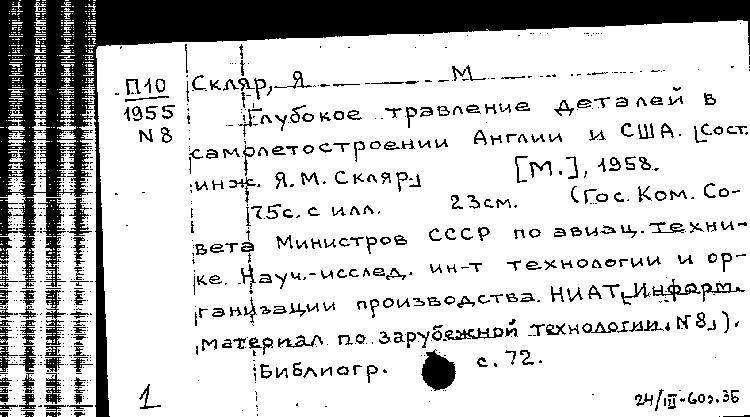 П10
1955
N8
Скляр, Я М
Глубокое травление деталей в
самолетостроении Англии и США. [Сост.
инж. Я. М. Скляр]
[М.], 1958.
75с. с илл. 23см. (Гос. Ком. Со-
вета Министров СССР по авиац. техни-
ке. Науч.-исслед. ин-т технологии и ор-
ганизации производства. НИАТ[Информ.
материал по зарубежной технологии, N8]).
Библиогр. с. 72.
1
24/III-60г. 35